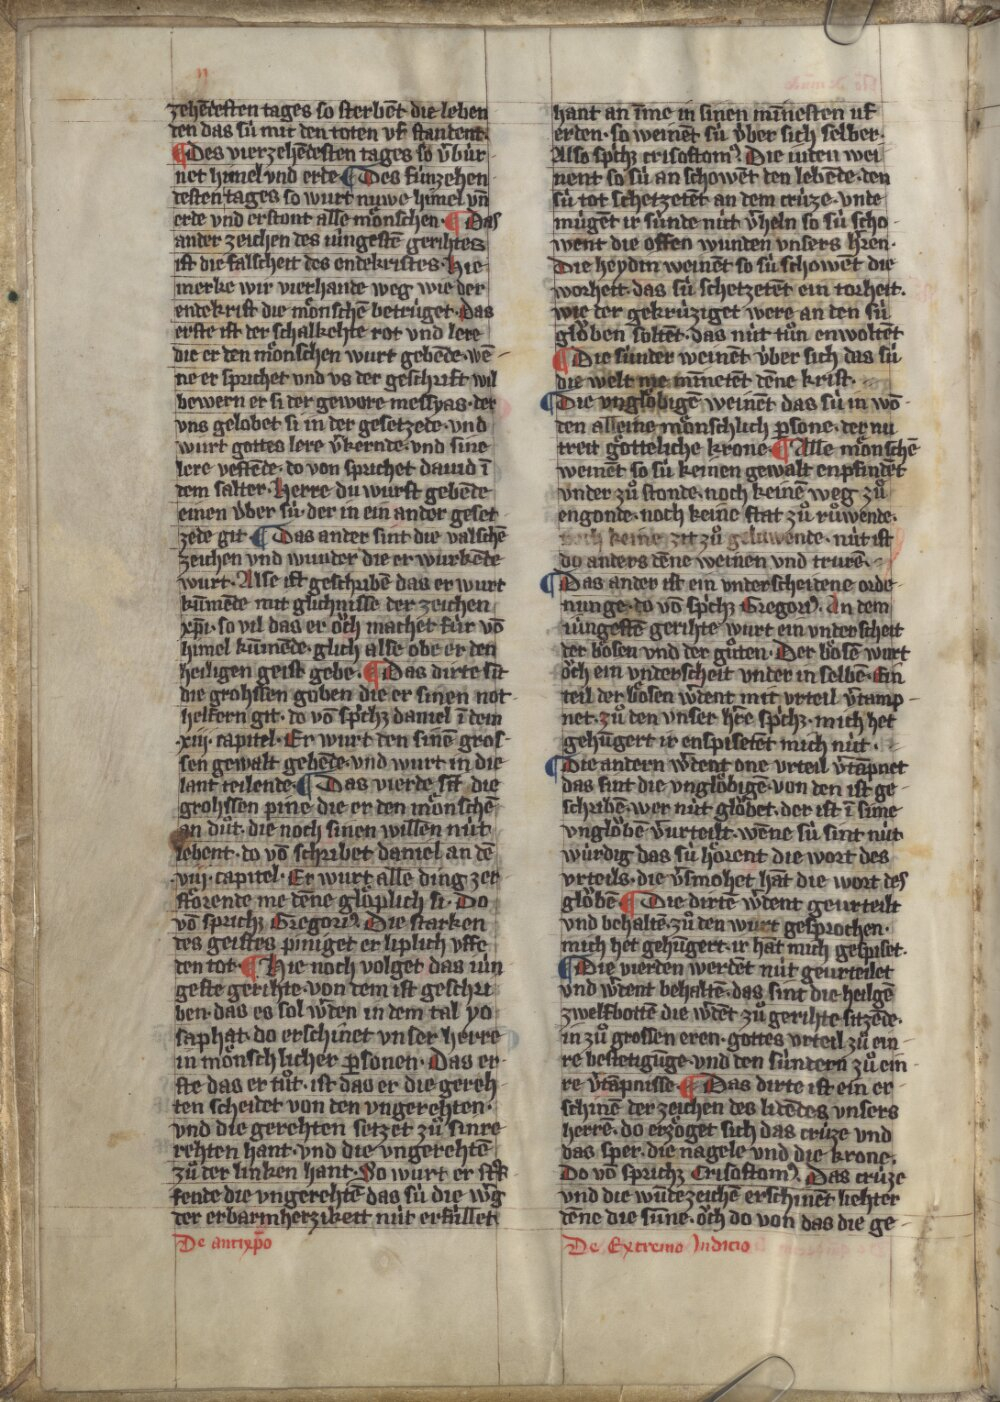 ıı
zehēdesten tages so sterbēt die leben
den das sú mit den toten vf standent.
¶ Des vierzehēdesten tages so v̾búr
net himel vnd erde ¶ Des fúnzehen
desten tages so wurt nuwe himel vn̄
erde vnd erstont alle mönschen. ¶ Das
ander zeichen des iúngestē gerihtes
ist die falscheit des endekristes. Hie
merke wir vierhande weg wie der
endekrist die mönschē betrúget. Das
erste ist der schalkehte rot vnd lere
die er den mönschen wurt gebēde. wē
ne er sprichet vnd vs der geschrift wil
bewern er si der gewore messyas. der
vns gelobet si in der gesetzede. vnd
wurt gottes lere v̾kerende. vnd sine
lere vestēde. do von sprichet dauid ī
dem salter. Herre du wurst gebēde
einen v́ber sú. der in ein ander geset
zede git ¶ Das ander sint die valschē
zeichen vnd wunder die er wúrkēde
wurt. Alse ist geschribē das er wurt
kúmēde mit glichnisse der zeichen
xp̄i. so vil das er öch machet fúr vō
himel kúmēde. glich alse obe er den
heiligen geist gebe. ¶ Das dirte sīt
die grohssen goben die er sinen not
helfern git. do vō sp̾chz daniel ī dem
.xiij. capitel. Er wurt den sinē gros
sen gewalt gebēde. vnd wurt in die
lant teilende. ¶ Das vierde sīt die
grohssen pine die er den mönschē
an dǔt. die noch sinen willen nút
lebent. do vō schribet daniel an dē
viij. capitel. Er wurt alle ding zer
störende me dēne glöplich si. Do
vō sprichz Gregori9. Die starken
des geistes piniget er liplich vffe
den tot. ¶ Hie noch volget das iún
geste gerihte. von dem ist geschri
ben. das es sol w̾den in dem tal yo
saphat. do erschinet vnser herre
in mönschlicher p̱sonen. Das er
ste das er tůt. ist das er die gereh
ten scheidet von den vngerehten.
vnd die gerehten setzet zů sinre
rehten hant. vnd die vngerehtē
zů der linken hant. So wurt er
fende die vngerehtē das sú die w̾g
der erbarmherzikeit nút erfúllet
De antixp̄o
hant an īme in sinen mīnesten vf
erden. so weinēt sú v́ber sich selber.
Also sp̾chz crisostom9. Die iuden wei
nent so sú an schowēt den lebēde. den
sú tot schetzetēt an dem crúze. vnde
múgēt ir súnde nút v̾heln so sú scho
went die offen wunden vnsers h̾ren.
Die heydin weinēt so sú schowēt die
worheit. das sú schetzetēt ein torheit.
wie der gekrúziget were an den sú
glöben soltēt. das nút tůn enwoltēt
¶ Die súnder weinēt v́ber sich das sú
die welt me mīnetēt dēne krist.
¶ Die vnglöbigē weinēt das sú in wō
den alleine mönschlich p̱sone. der nu
treit götteliche krone. ¶ Alle mönschē
weinēt so sú keinen gewalt enpfindēt
vnder zů stonde. noch keinē weg zů
engonde. noch keine stat zů růwende.
noch keine zit zů gelúwende. nút ist
do anders dēne weinen vnd trurē.
¶ Das ander ist ein vnderscheidene orde
nunge. do vō sp̾chz Gregori9. An dem
iúngestē gerihte wurt ein vnderscheit
der bösen vnd der gůten. Der bösē wurt
öch ein vnderscheit vnder in selbē. Ein
teil der bösen w̾dent mit vrteil v̾tamp
net. zů den vnser h̾re sp̾chz. mich het
gehúgert ir enspisetēt mich nút.
¶ Die andern w̾dent one vrteil v̾tāpnet
das sint die vnglöbigē. von den ist ge
schribē. wer nút glöbet. der ist ī sime
vnglöbē v̾urteilt. wēne sú sint nút
wúrdig das sú hörent die wort des
vrteils. die v̾smohet hāt die wort des
glöbē ¶ Die dirtē w̾dent geurteilt
vnd behaltē. zů den wurt gesprochen.
mich het gehúgert. ir hāt mich gespiset.
¶ Die vierden werdēt nút geurteilet
vnd w̾dent behaltē. das sint die heilgē
zwelfbottē die w̾dēt zů gerihte sitzēde.
in zů grossen eren. gottes vrteil zů ein
re bestetigūge. vnd den súndern zů ein
re v̾tāpnisse. ¶ Das dirte ist ein er
schinē der zeichen des lidēdes vnsers
herrē. do erzöget sich das crúze vnd
das sper. die nagele vnd die krone.
Do vō sprichz Crisostom9. Das crúze
vnd die wūdezeichē erschinēt liehter
dēne die sūne. öch do von das die ge
De Extremo Iudicio